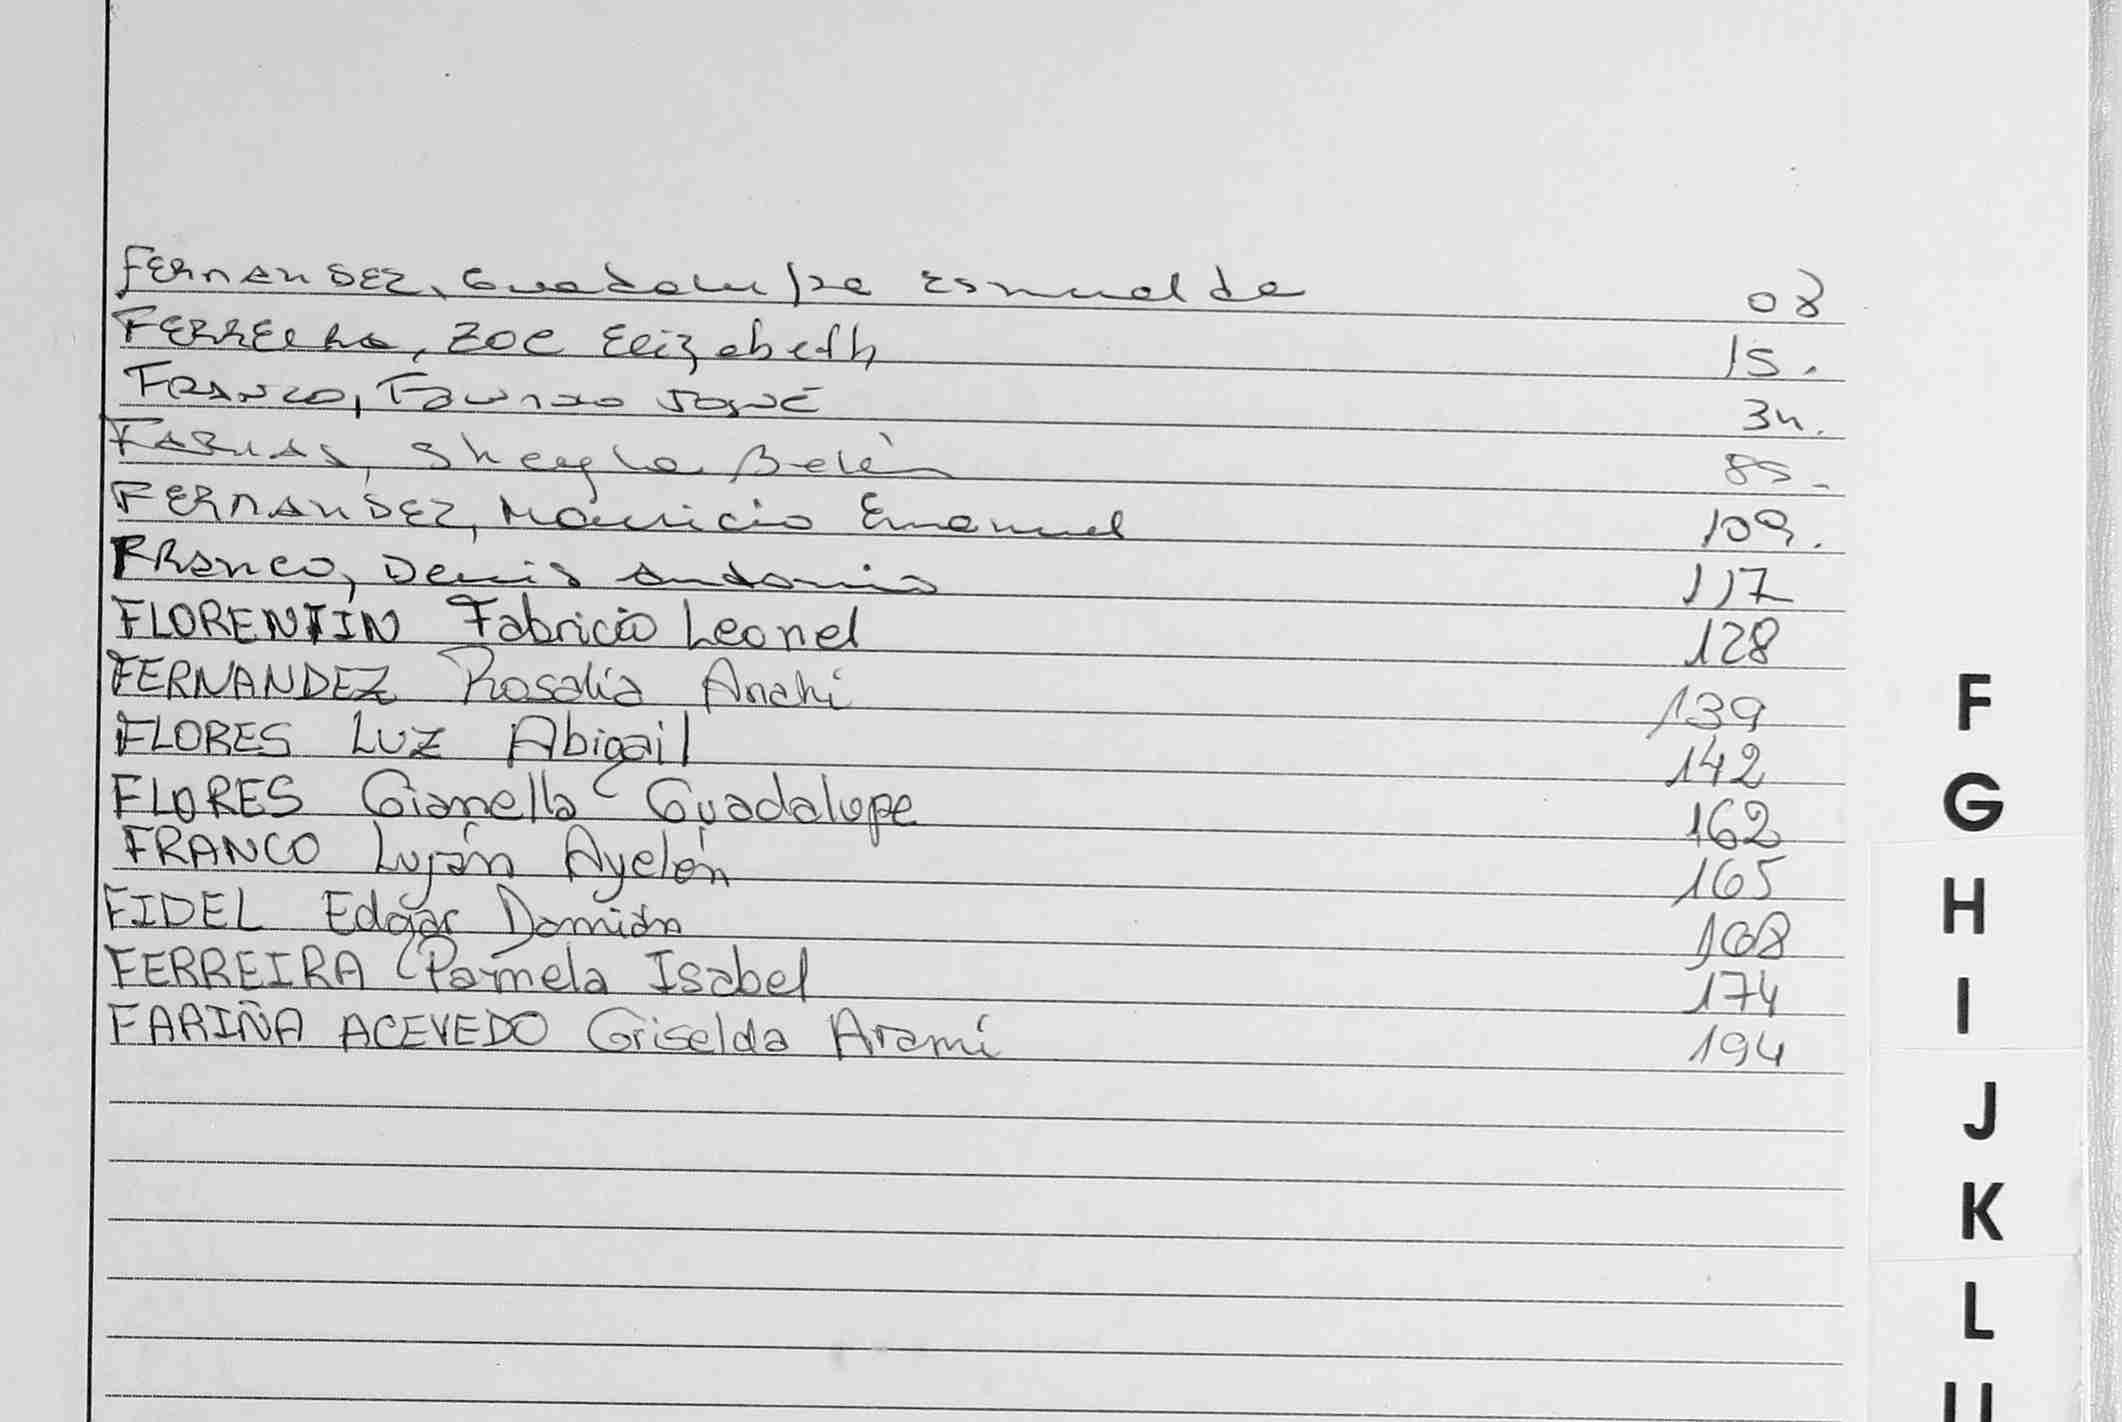 FERNANDEZ, Guadalupe Esmuelda 08
FERREIRA, ZOE Elizabeth 15.
FRANCO, Facundo José 34.
FARIAS, Sheyla Belén 85.
FERNANDEZ, Mauricio Emanuel 109.
FRANCO, Denis Antonio 117
FLORENTIN Fabricio Leonel 128
FERNANDEZ Rosalia Anahi 139
FLORES LUZ Abigail 142
FLORES Gianella Guadalupe 162
FRANCO Luján Ayelén 165
FIDEL Edgar Damián 168
FERREIRA Pamela Isabel 174
FARIÑA ACEVEDO Griselda Aramí 194
F
G
H
I
J
K
L